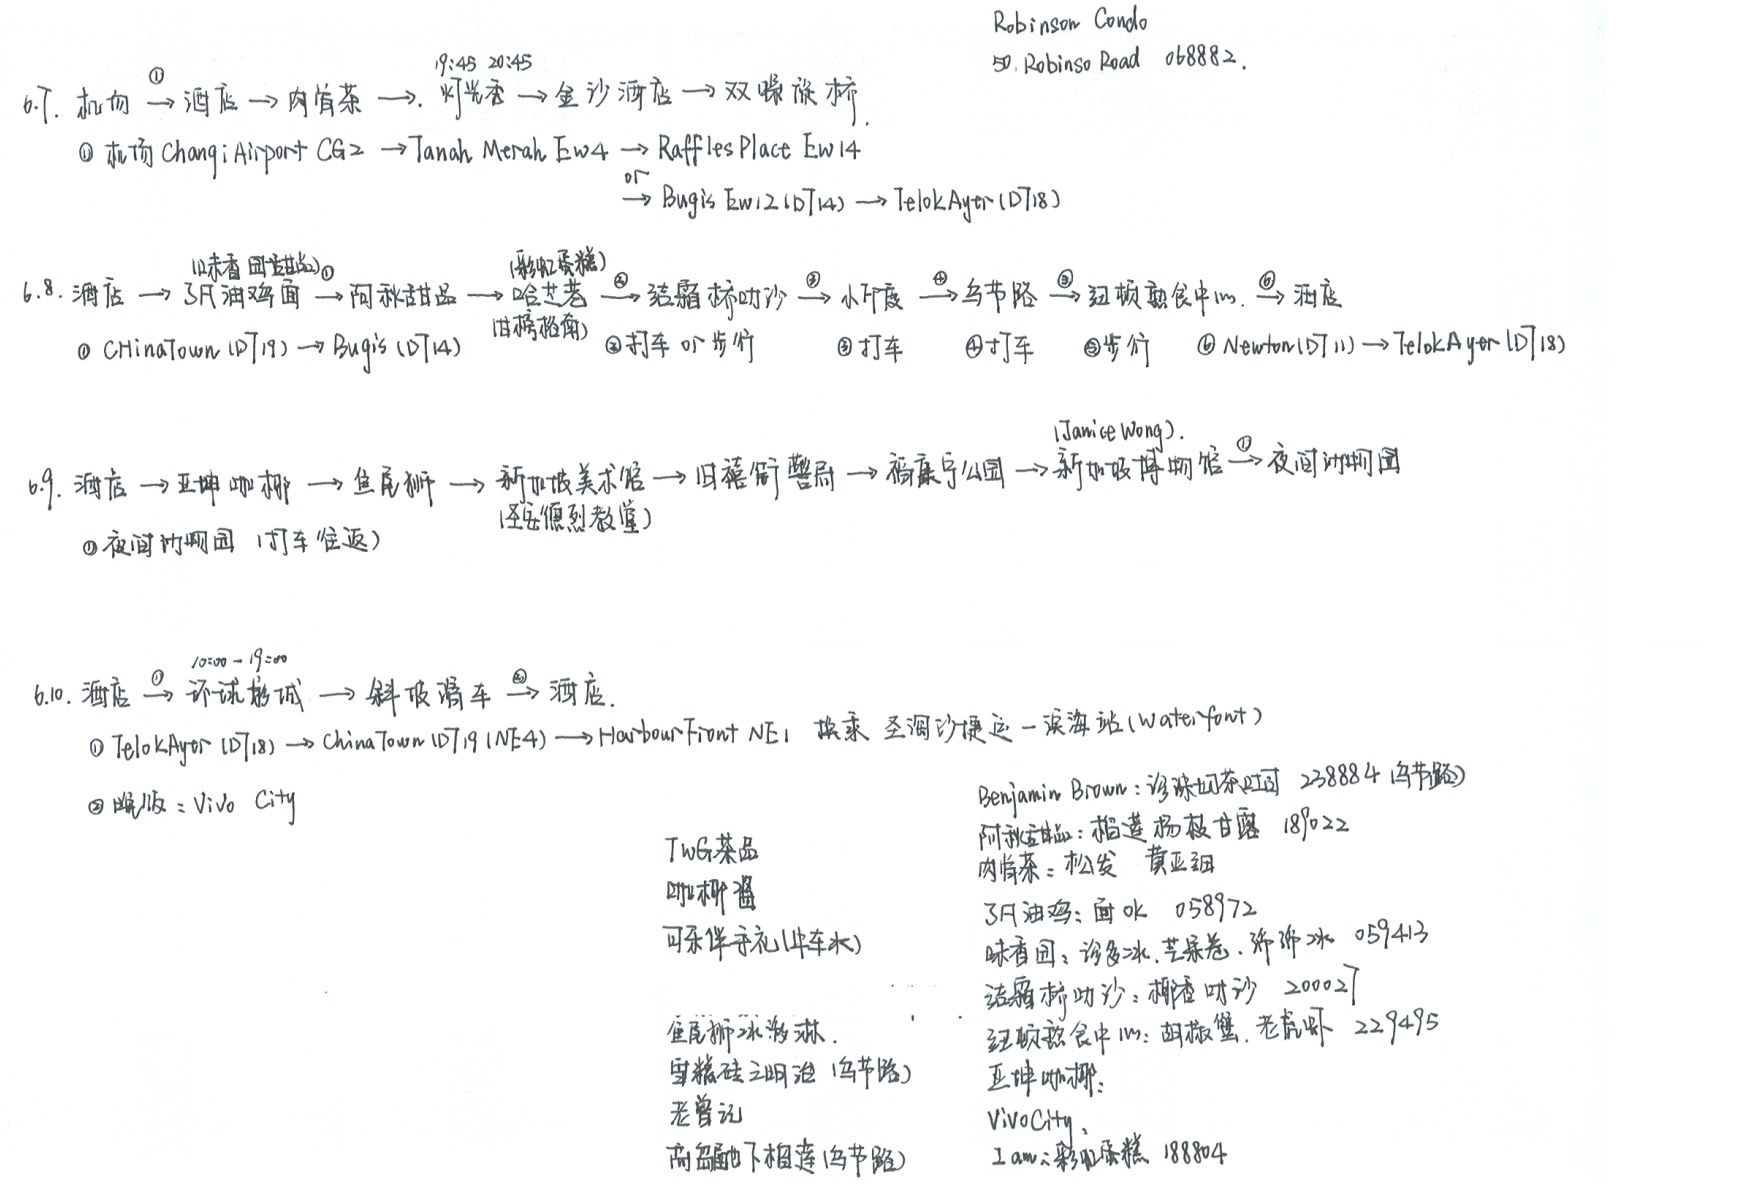 Robinson Condo
50. Robinso Road 068882.
19:45 20:45
6.7. 机场 ①→ 酒店 → 肉骨茶 →. 灯光秀 → 金沙酒店 → 双螺旋桥.
① 机场 Changi Airport CG2 → Tanah Merah EW4 → Raffles Place EW14
or → Bugis EW12 (DT14) → Telok Ayer (DT18)
(味香园甜品) (彩虹蛋糕)
6.8. 酒店 → 了凡油鸡面 ①→ 阿秋甜品 → 哈芝巷 ②→ 结霜桥叻沙 ③→ 小印度 ④→ 乌节路 ⑤→ 纽顿熟食中心. ⑥→ 酒店
(甘榜格南)
① CHinaTown (DT19) → Bugis (DT14) ②打车 or 步行 ③打车 ④打车 ⑤步行 ⑥ Newton (DT11) → Telok Ayer (DT18)
(Janice Wong).
6.9. 酒店 → 亚坤咖椰 → 鱼尾狮 → 新加坡美术馆 → 旧禧街警局 → 福康宁公园 → 新加坡博物馆 ①→ 夜间动物园
(圣安德烈教堂)
① 夜间动物园 (打车往返)
10:00 - 19:00
6.10. 酒店 ①→ 环球影城 → 斜坡滑车 ②→ 酒店.
① Telok Ayer (DT18) → ChinaTown DT19 (NE4) → HarbourFront NE1 换乘 圣淘沙捷运 - 滨海站 (Waterfont)
② 晚饭: Vivo City
TWG茶品
咖椰酱
可乐伴手礼 (牛车水)
鱼尾狮冰淇淋.
雪糕砖三明治 (乌节路)
老曾记
高岛屋地下榴莲 (乌节路)
Benjamin Brown: 珍珠奶茶可可 238884 (乌节路)
阿秋甜品: 榴莲 杨枝甘露 189022
肉骨茶: 松发 黄亚细
了凡油鸡: 面 ok 058972
味香园: 珍多冰. 芒果卷. 沛沛冰 059413
结霜桥叻沙: 椰香叻沙 200027
纽顿熟食中心: 胡椒蟹. 老虎虾 229495
亚坤咖椰:
VivoCity.
I am: 彩虹蛋糕 188804